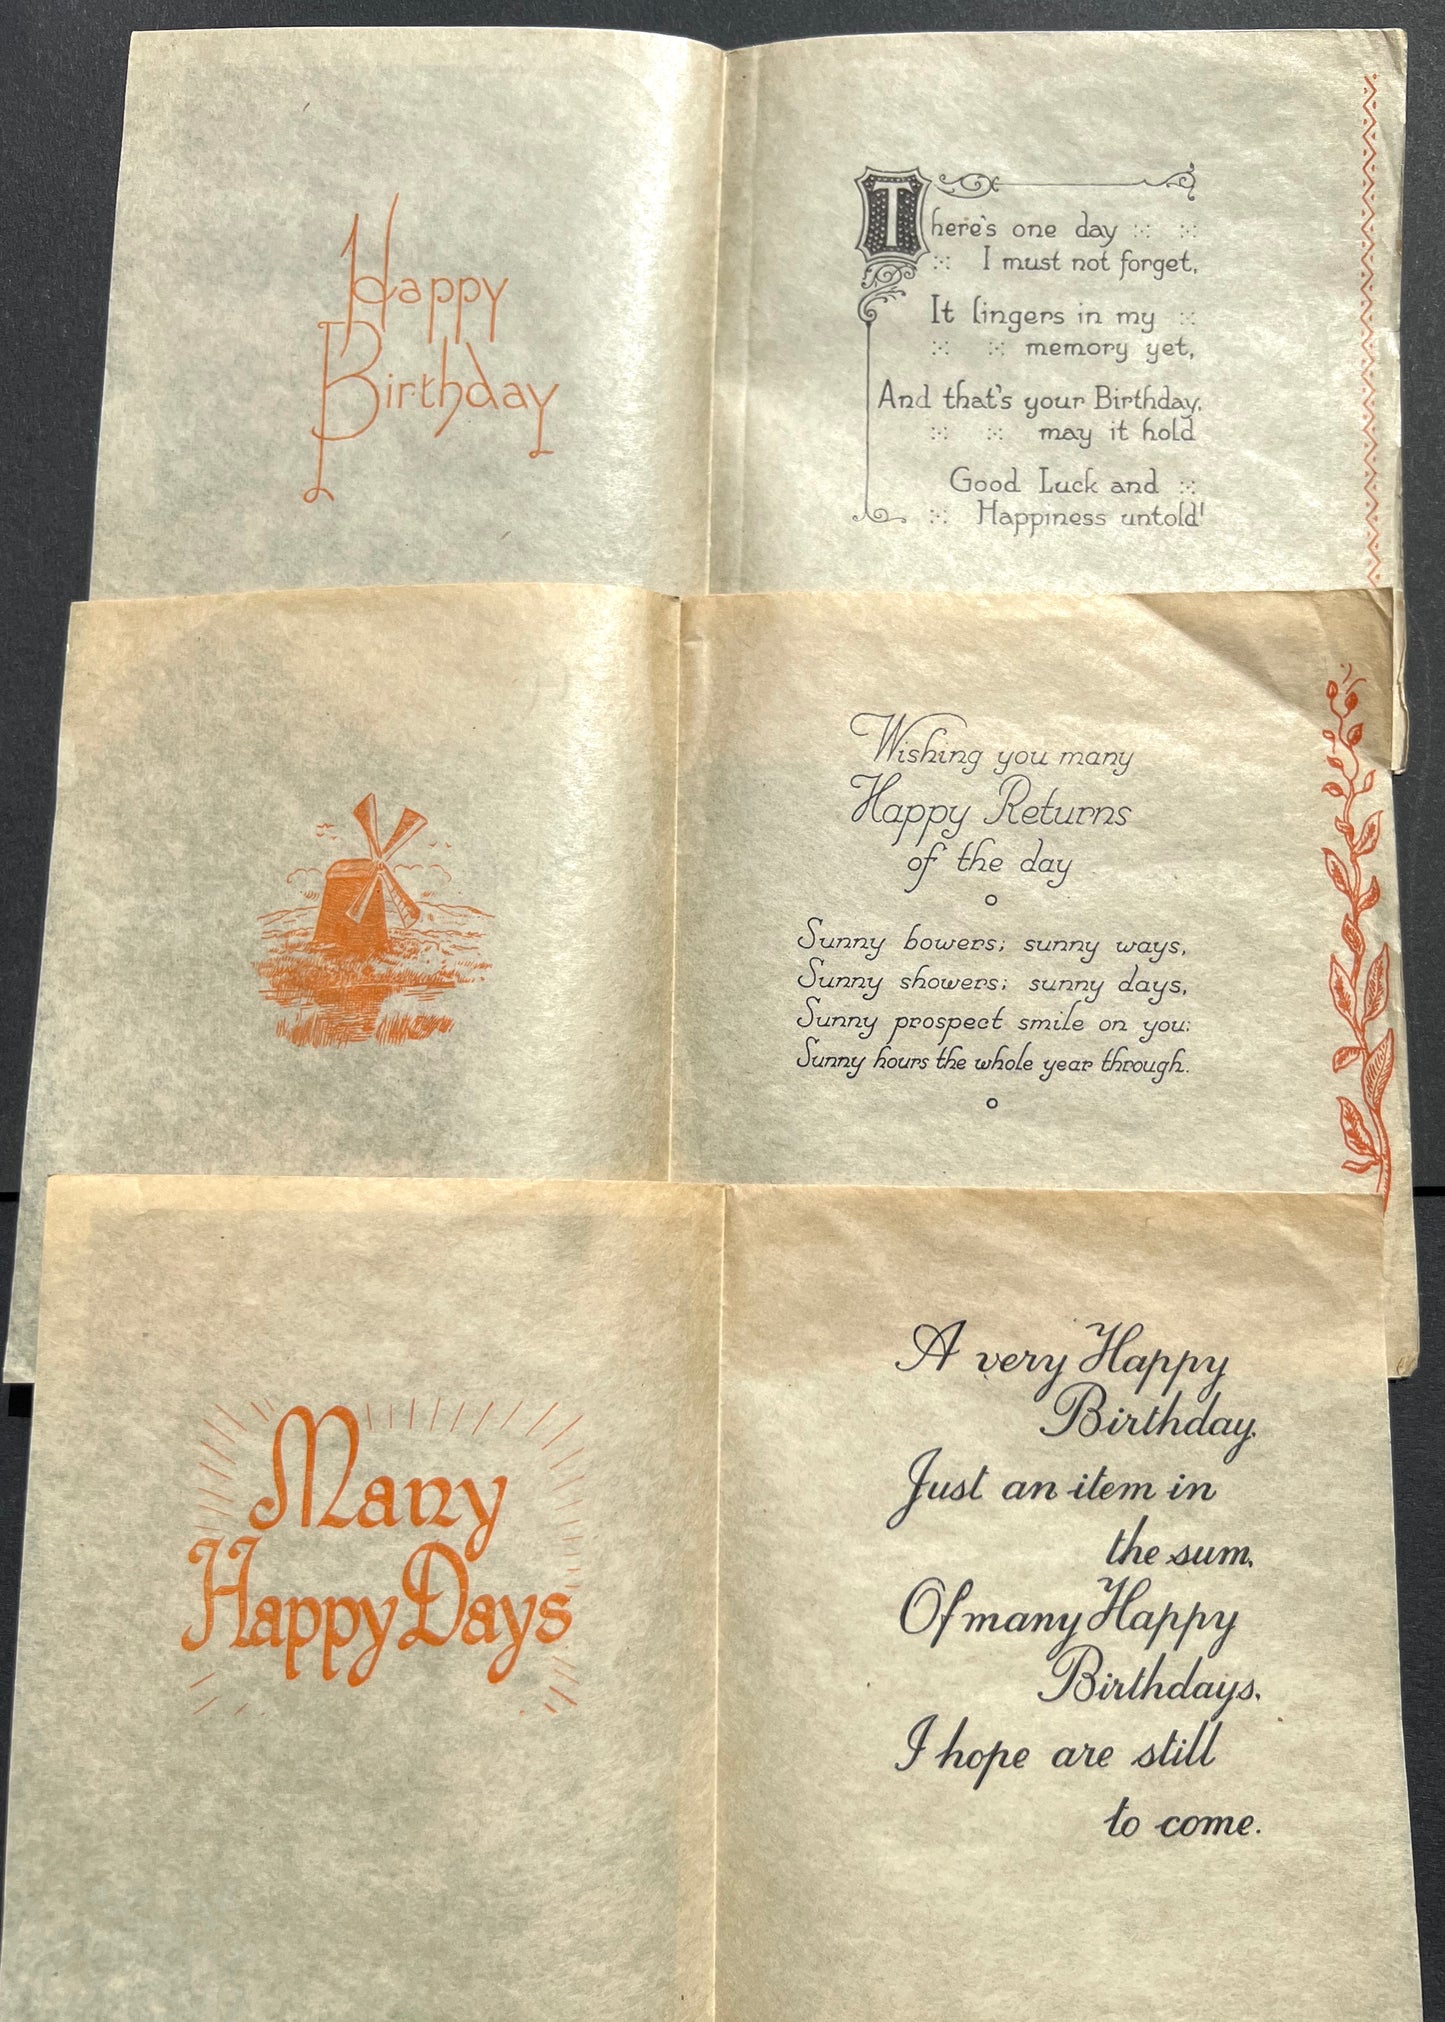 Happy
Birthday
There's one day
I must not forget,
It lingers in my
memory yet,
And that's your Birthday,
may it hold
Good Luck and
Happiness untold!
Wishing you many
Happy Returns
of the day
Sunny bowers; sunny ways,
Sunny showers; sunny days,
Sunny prospect smile on you;
Sunny hours the whole year through.
Many
Happy Days
A very Happy
Birthday.
Just an item in
the sum,
Of many Happy
Birthdays,
I hope are still
to come.